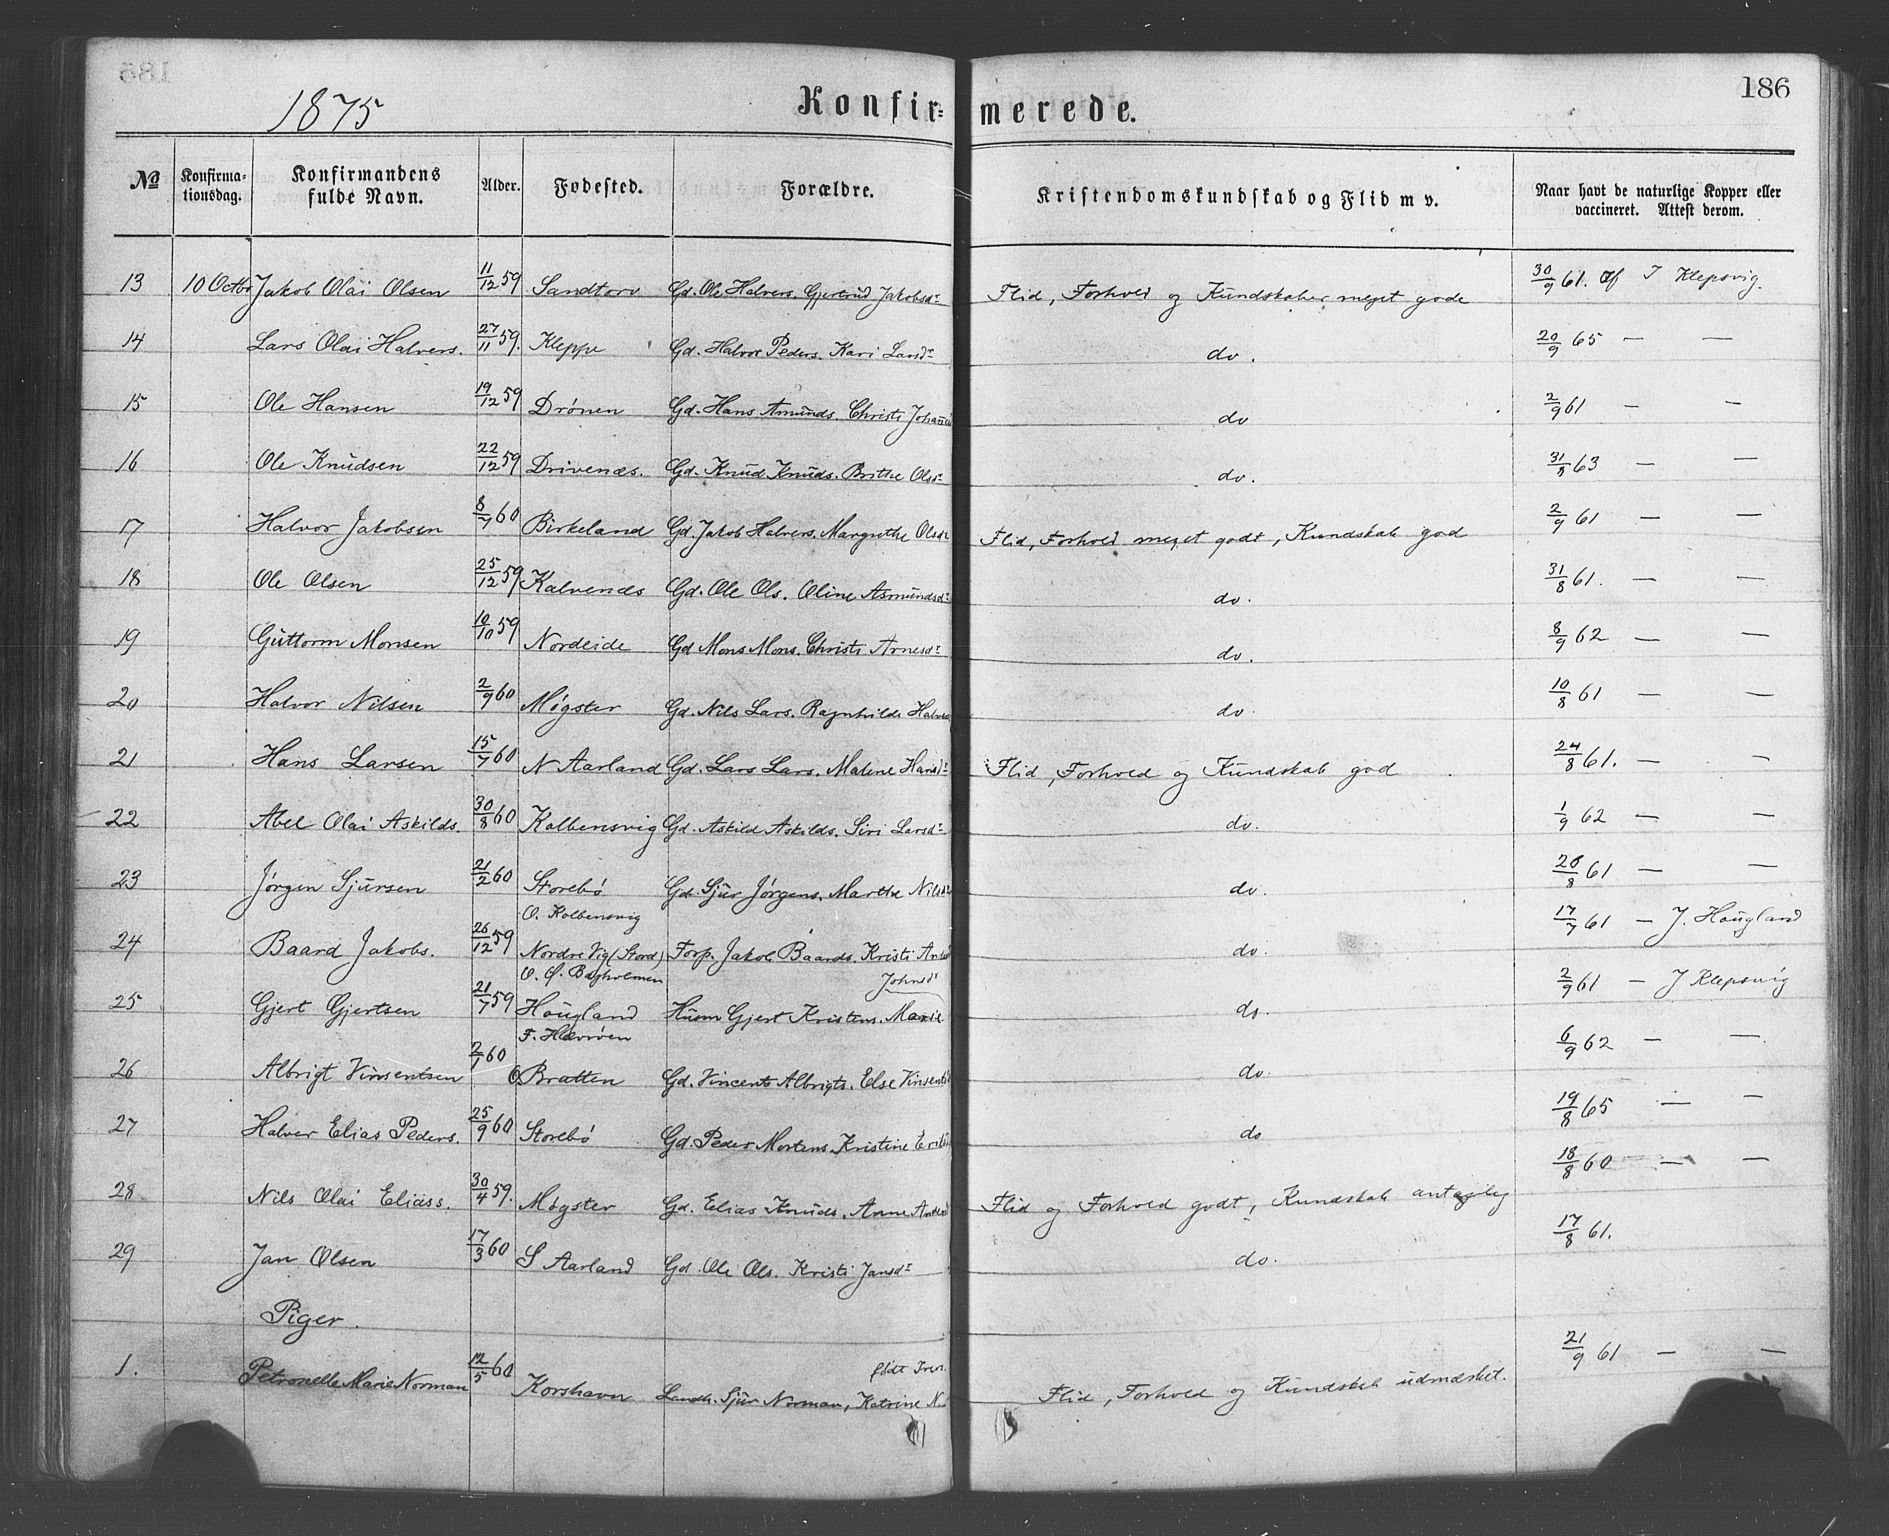 186
1875
Konfir= merede.
№ Konfirma-tionsdag. Konfirmandens fulde Navn. Alder. Fødested. Forældre. Kristendomskundskab og Flid m v. Naar havt de naturlige Kopper eller vaccineret. Attest derom.
13 10 Octbr Jakob Olai Olsen 11/12 59 Sandtorv Gd. Ole Halvors. Gjertrud Jakobsdr Flid, Forhold og Kundskaber meget gode 30/9 61. af J Klepsvig.
14 Lars Olai Halvors. 27/11 59. Kleppe Gd. Halvor Peders. Kari Larsdr do. 20/9 65 — —
15 Ole Hansen 19/12 59 Drönen Gd. Hans Amunds. Christi Johanes do 2/9 61 — —
16 Ole Knudsen 22/12 59 Drivenes. Gd. Knud Knuds. Brithe Olsdr do. 31/8 63 — —
17 Halvor Jakobsen 8/7 60 Birkeland Gd. Jakob Halvors. Margrethe Olsdr Flid, Forhold meget godt, Kundskab god 2/9 61 — —
18 Ole Olsen 25/12 59 Kalvenes Gd. Ole Ols. Oline Asmundsdr do. 31/8 61. — —
19 Guttorm Monsen 10/10 59 Nordeide Gd Mons Mons. Christi Arnesdr do. 8/9 62 — —
20 Halvor Nilsen 2/9 60 Møgster Gd. Nils Lars. Ragnhilde Halvors do. 10/8 61 — —
21 Hans Larsen 15/7 60 N Aarland Gd. Lars Lars. Malene Hansdr Flid, Forhold og Kundskab god 24/8 61. — —
22 Abel Olai Askilds. 30/8 60 Kolbensvig Gd. Askild Askilds. Siri Larsdr do. 1/9 62 — —
23 Jørgen Sjursen 21/2 60 Storebø Gd. Sjur Jørgens. Marthe Nilsdr do. 28/8 61 — —
O. Kolbensvig
24 Baard Jakobs. 26/12 59 Nordre Vig (Stord) Forp. Jakob Baards. Kristi Andrs do. 17/7 61 — J. Hougland
O. Ø. Bagholmen Johnsdr
25 Gjert Gjertsen 21/7 59 Hougland Husm Gjert Kristens. Marie do. 2/9 61 — J Klepsvig
F. Hevrøen
26 Albrigt Vinsentsen 2/1 60 O. Bratten Gd. Vincents Albrigts. Else Vinsents do. 6/9 62 — —
27 Halvor Elias Peders. 25/9 60 Storebø Gd. Peder Mortens. Kristine Eriks do 19/8 65 — —
28 Nils Olai Eliass. 30/4 59. Møgster Gd. Elias Knuds. Anne Anders Flid og Forhold godt, Kundskab antagelig 18/8 60 — —
29 Jan Olsen 17/3 60 S Aarland Gd. Ole Ols. Kristi Jansdr do. 17/8 61.
Piger.
født Iver.
1. Petronelle Marie Norman 12/5 60 Korshavn Landh. Sjur Norman, Katrine N. Flid, Forhold og Kundskab udmærket. 21/9 61 — —